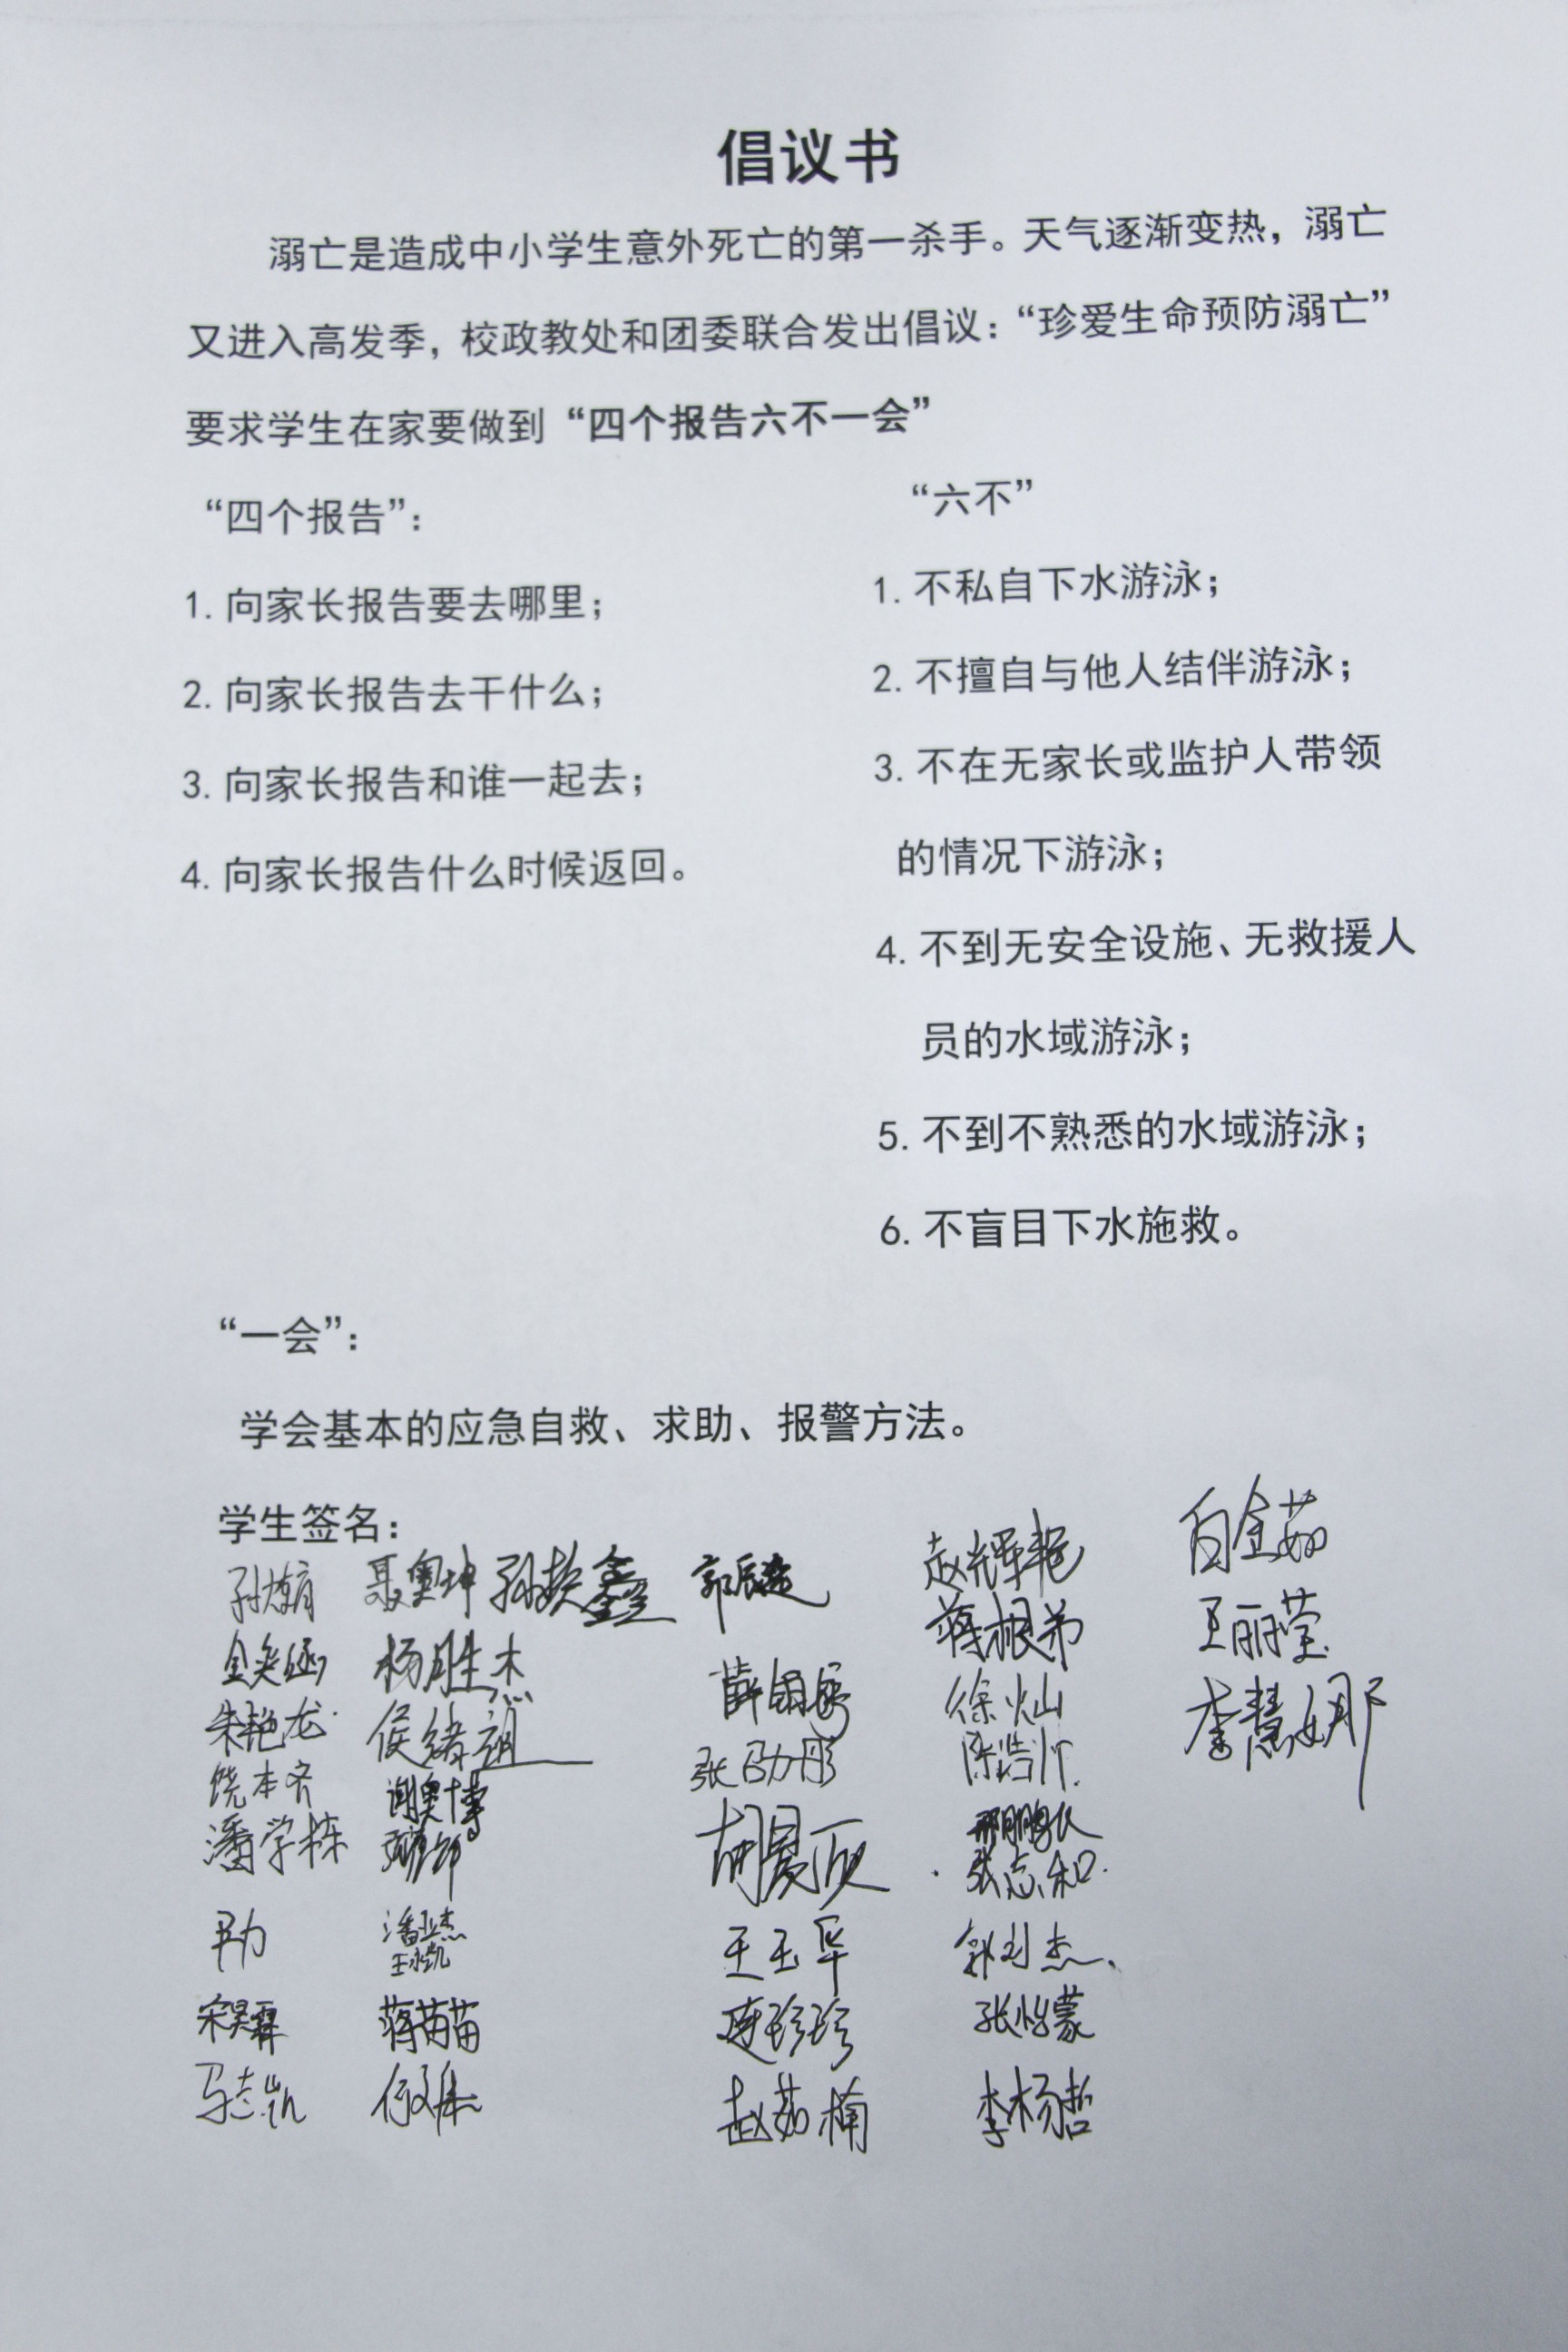 倡议书
溺亡是造成中小学生意外死亡的第一杀手。天气逐渐变热，溺亡
又进入高发季，校政教处和团委联合发出倡议：“珍爱生命预防溺亡”
要求学生在家要做到“四个报告六不一会”
“四个报告”：
1. 向家长报告要去哪里；
2. 向家长报告去干什么；
3. 向家长报告和谁一起去；
4. 向家长报告什么时候返回。
“六不”
1. 不私自下水游泳；
2. 不擅自与他人结伴游泳；
3. 不在无家长或监护人带领
的情况下游泳；
4. 不到无安全设施、无救援人
员的水域游泳；
5. 不到不熟悉的水域游泳；
6. 不盲目下水施救。
“一会”：
学会基本的应急自救、求助、报警方法。
学生签名：
聂奥坤
朱艳龙
饶本齐
潘学栋
马志凯
杨胜杰
侯绪祖
谢奥博
潘亚杰
王永凯
蒋苗苗
张劭彤
胡晨欣
王玉华
连珍珍
赵茹楠
赵辉艳
蒋根弟
徐灿
陈浩帅
张志和
张怡蒙
李杨哲
白金茹
王丽莹
李慧娜